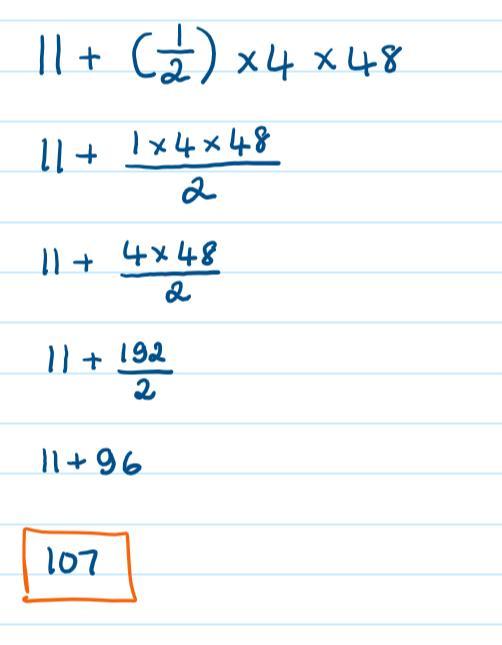 11 + (1/2) × 4 × 48
11 + (1 × 4 × 48)/2
11 + (4 × 48)/2
11 + 192/2
11 + 96
107